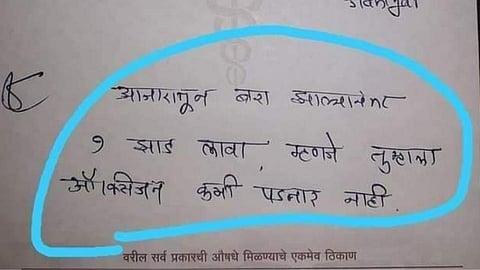 आजारातून बरा झाल्यानंतर
१ झाड लावा, म्हणजे तुम्हाला
ऑक्सिजन कमी पडनार नाही.
वरील सर्व प्रकारची औषधे मिळण्याचे एकमेव ठिकाण